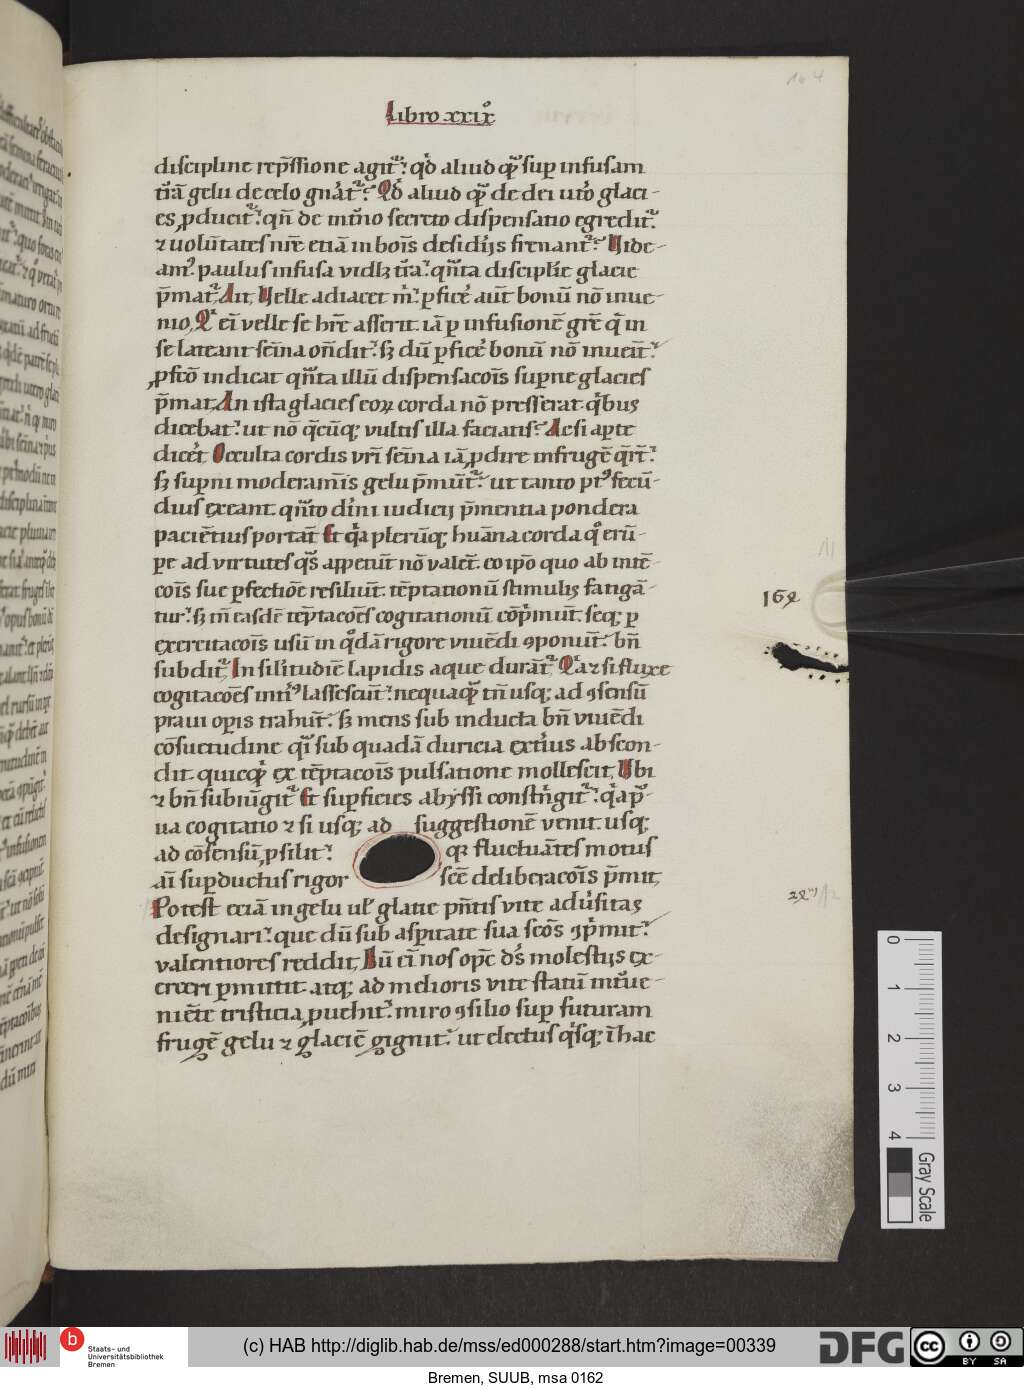 Libro xxix͛
discipline rep̄ssione agit᷑. qď aliud qͣ̄ sup infusam
t̄rā gelu de celo gn̄at᷑. Qď aliud qͣ̄ de dei utō glaci-
es ꝓducit᷑. qn̄ de int̄no secreto dispensatio egredit᷑.
⁊ uolūtates nr̄e etiā in bois̄ desidijs frenant᷑. Vide-
am᷒ paulus infusa vidꝫ t̄ra. qn̄ta disciplīe glacie
p̄mat᷑. Ait, Velle adiacet m̄. ꝑfice᷑ aūt bonū nō inue-
nio, Qi ei̅ velle se hr̄e asserit. iā ꝑ infusionē gr̄e q̄ in
se lateant sēina on̄dit᷑. sꝫ dū ꝑfice᷑ bonū nō inuei̅t᷑.
ꝓfcō indicat qn̄ta illū dispensacois̄ supne glacies
p̄mat, An ista glacies eoꝝ corda nō presserat. qͥbus
dicebat᷑. ut nō q̄cūqꝫ vultis illa faciatis. Acsi apte
dice᷑t Occulta cordis vr̄i sēina iā ꝓdire in frugē q̄rt᷑.
sꝫ supni moderam̄is gelu p̄mūt᷑. ut tanto pt᷒ fecū-
dius exeant. qn̄to diūi iudicij p̄mentia pondera
paciētius portāt Et qͥa plerūqꝫ huāna corda qͦ erū-
pe ad virtutes qͥs appetūt nō valēt. eo ipō quo ab intē-
cois̄ sue ꝑfectioē resiliūt. tēptationū stimulis fatigā-
tur. sꝫ tn̄ easdē tēptacoēs cogitationū cōpͥmūt. seqꝫ ꝑ
exercitacois̄ usū in qͦdā rigore viuēdi ꝯponūt. bn̄
subdit᷑, In silitudīe lapidis aque durāt᷑. Qͥa ⁊ si fluxe
cogitacoēs int᷑i᷒ lassescūt. nequaqͣ̄ tn̄ usqꝫ ad ꝯsensū
praui opis trahūt. sꝫ mens sub inducta bn̄ viuēdi
cōsuetudine qͣ̄ sub quadā duricia ext᷑ius abscon-
dit. quicqͥd ex tēptacois̄ pulsatione mollescit, Vbi
⁊ bn̄ subiūgit᷑ Et supficies abyssi constringit᷑. qͥa pͣ-
ua cogitatio ⁊ si usqꝫ ad suggestionē venit. usqꝫ
ad cōsensū ꝓsilit᷑. qꝛ fluctuātes motus
ai̅ supductus rigor sc̄e deliberacois̄ p̄mit,
Potest eciā in gelu ul᷑ glatie pn̄tis vite adu᷑sitas
designari. que dū sub aspitate sua scōs ꝯpͥmit᷑.
valentiores reddit, Dū ei̅ nos opc̄ ds̄ molestijs ex-
erceri ꝑmittit. atqꝫ ad melioris vite statū int᷑ue-
niēte tristicia ꝓuehit᷑. miro ꝯsilio sup futuram
frugē gelu ⁊ glaciē gignit᷑. ut electus qͥsqꝫ i̅ hac
164
0
1
2
3
4
Gray Scale
b
Staats- und
Universitätsbibliothek
Bremen
(c) HAB http://diglib.hab.de/mss/ed000288/start.htm?image=00339
DFG
cc
BY SA
Bremen, SUUB, msa 0162